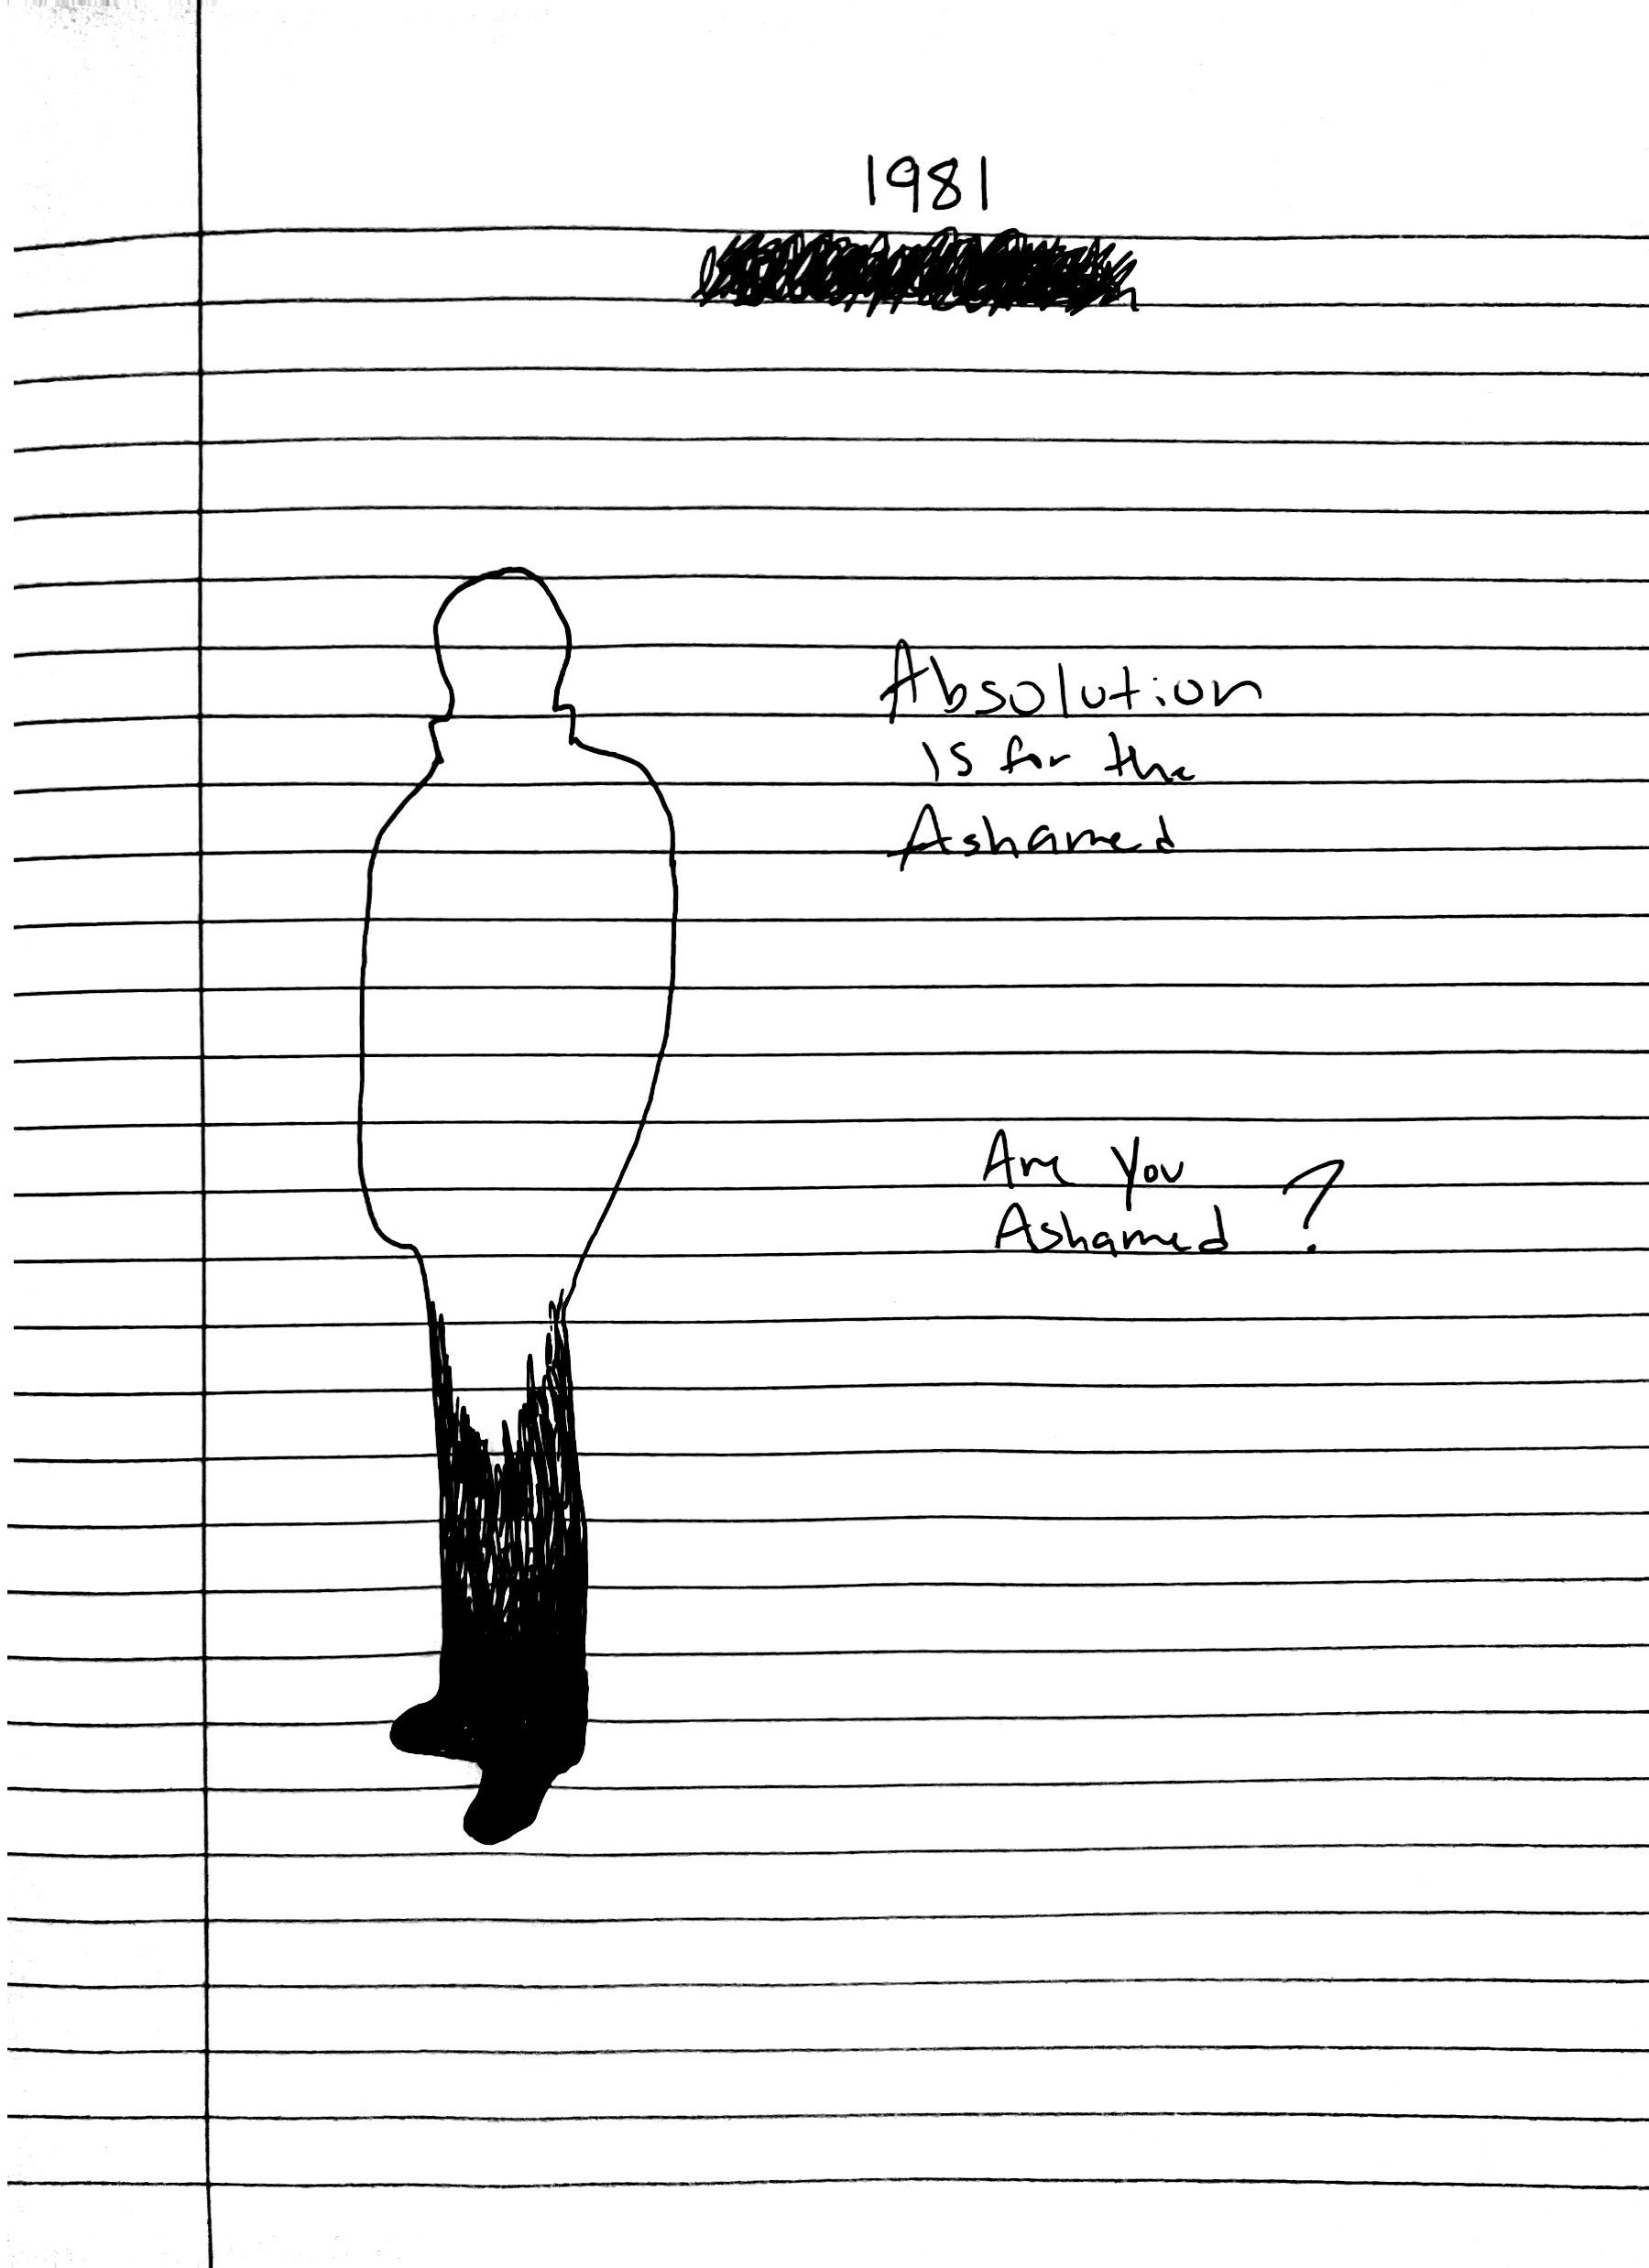 1981
Absolution
is for the
Ashamed
Are You
Ashamed ?